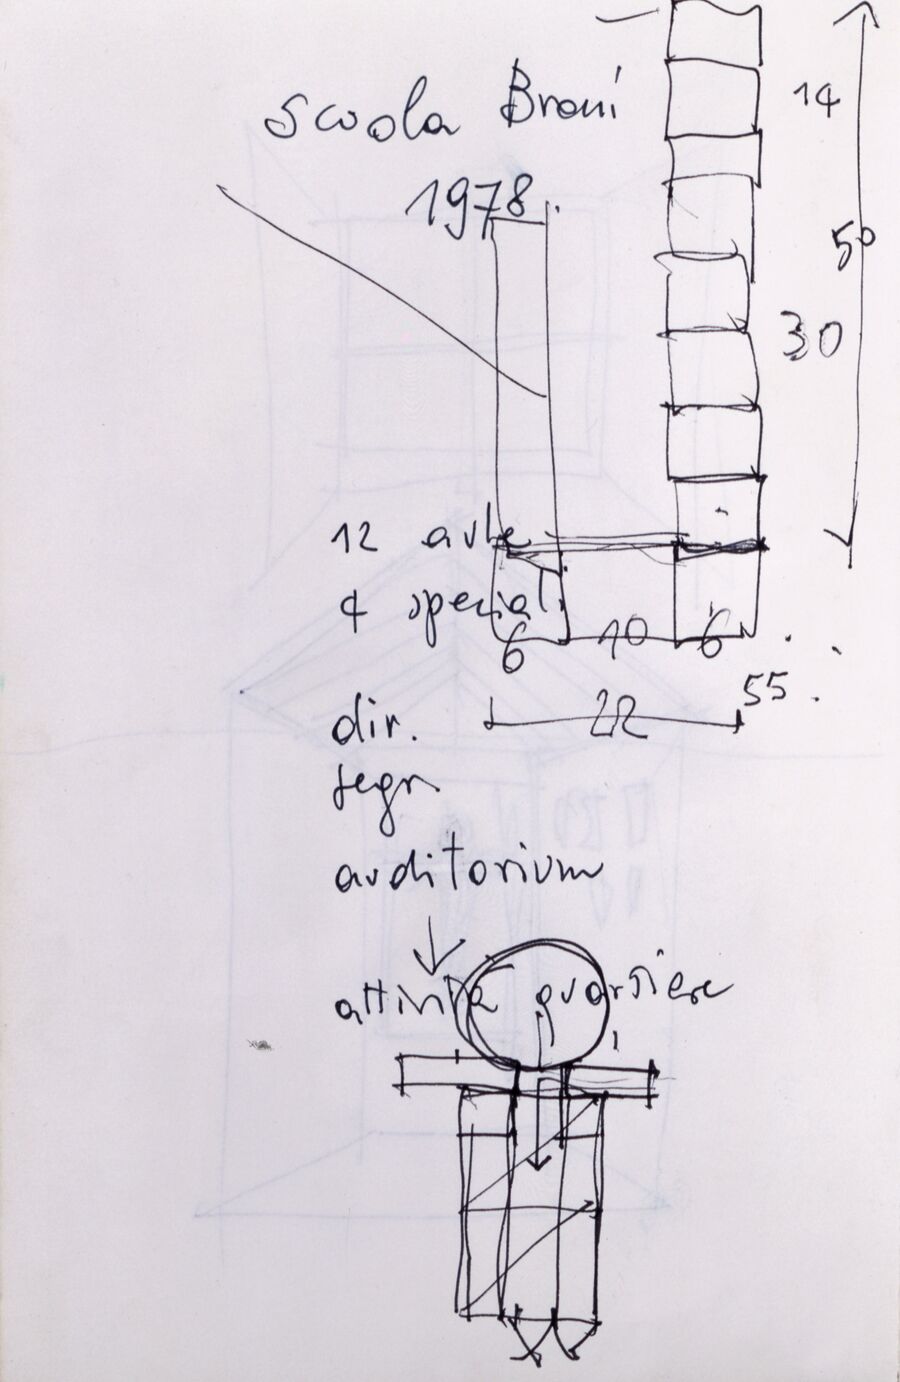 Scuola Broni
14
1978
50
30
12 aule
4 speciali
6 10 6
55
22
dir.
segr.
auditorium
attività quartiere